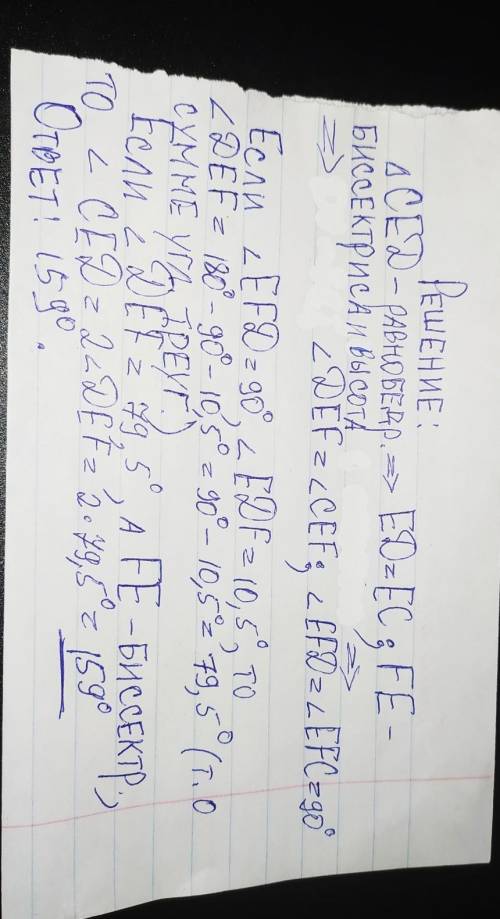 РЕШЕНИЕ:
△CED – РАВНОБЕДР. ⇒ ED=EC; FE –
БИССЕКТРИСА И ВЫСОТА ⇒
⇒ ∠DEF = ∠CEF; ∠EFD = ∠EFC = 90°
ЕСЛИ ∠EFD = 90°, ∠EDF = 10,5°, ТО
∠DEF = 180° – 90° – 10,5° = 90° – 10,5° = 79,5° (Т. О
СУММЕ УГЛ. ТРЕУГ.)
ЕСЛИ ∠DEF = 79,5°, А FE – БИССЕКТР.,
ТО ∠CED = 2∠DEF = 2·79,5° = 159°
ОТВЕТ: 159°.